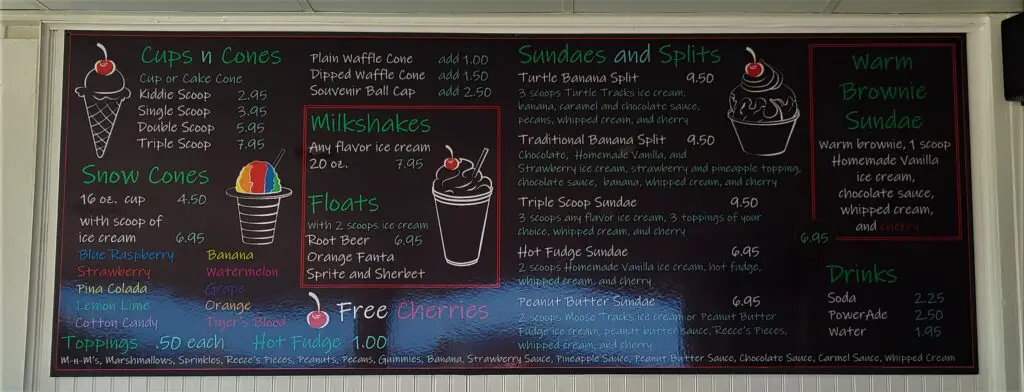 Cups n Cones
Cup or Cake Cone
Kiddie Scoop 2.95
Single Scoop 3.95
Double Scoop 5.95
Triple Scoop 7.95
Snow Cones
16 oz. cup 4.50
with scoop of
ice cream 6.95
Blue Raspberry Banana
Strawberry Watermelon
Pina Colada Grape
Lemon Lime Orange
Cotton Candy Tiger's Blood
Toppings .50 each Hot Fudge 1.00
M-n-M's, Marshmallows, Sprinkles, Reece's Pieces, Peanuts, Pecans, Gummies, Banana, Strawberry Sauce, Pineapple Sauce, Peanut Butter Sauce, Chocolate Sauce, Carmel Sauce, Whipped Cream
Plain Waffle Cone add 1.00
Dipped Waffle Cone add 1.50
Souvenir Ball Cap add 2.50
Milkshakes
Any flavor ice cream
20 oz. 7.95
Floats
with 2 scoops ice cream
Root Beer 6.95
Orange Fanta
Sprite and Sherbet
Free Cherries
Sundaes and Splits
Turtle Banana Split 9.50
3 scoops Turtle Tracks ice cream,
banana, caramel and chocolate sauce,
pecans, whipped cream, and cherry
Traditional Banana Split 9.50
Chocolate, Homemade Vanilla, and
Strawberry ice cream, strawberry and pineapple topping,
chocolate sauce, banana, whipped cream, and cherry
Triple Scoop Sundae 9.50
3 scoops any flavor ice cream, 3 toppings of your
choice, whipped cream, and cherry
Hot Fudge Sundae 6.95
2 scoops Homemade Vanilla ice cream, hot fudge,
whipped cream, and cherry
Peanut Butter Sundae 6.95
2 scoops Moose Tracks ice cream or Peanut Butter
Fudge ice cream, peanut butter sauce, Reece's Pieces,
whipped cream, and cherry
Warm
Brownie
Sundae
Warm brownie, 1 scoop
Homemade Vanilla
ice cream,
chocolate sauce,
whipped cream,
and cherry
6.95
Drinks
Soda 2.25
PowerAde 2.50
Water 1.95